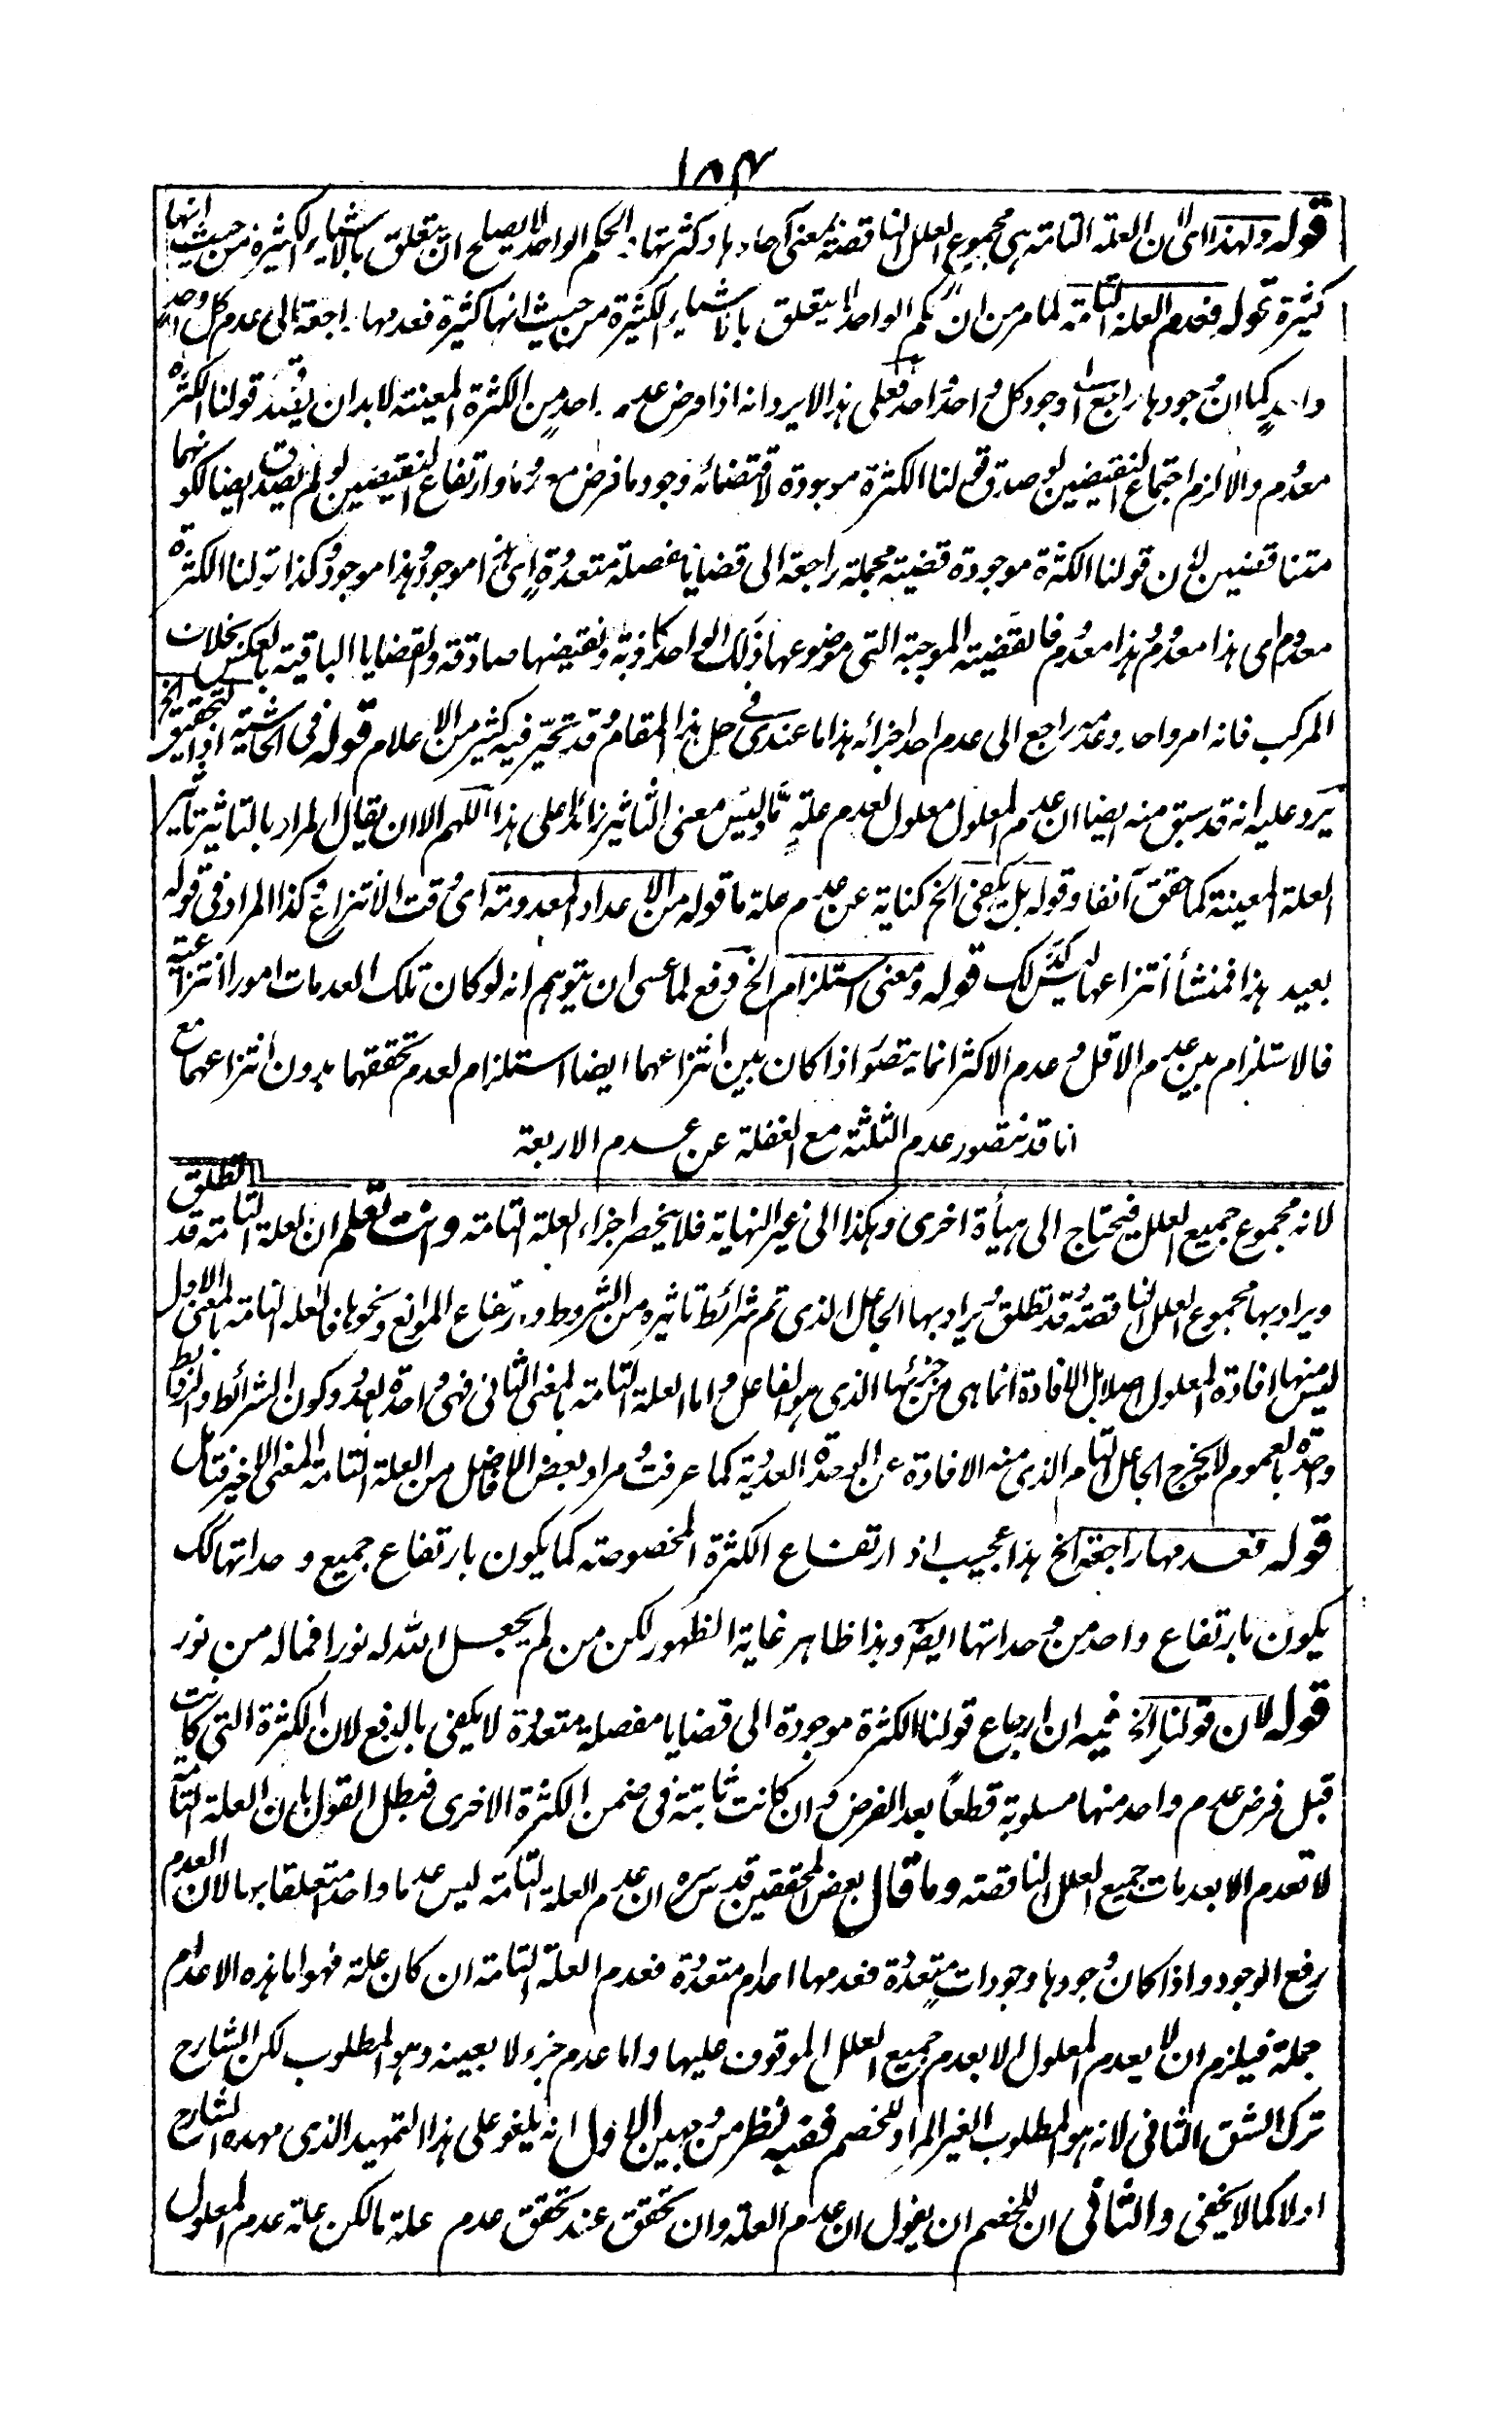 ١٨٣
قوله ولهذا اى لان العلة التامة هى مجموع العلل الناقصة بمعنى آحادها وكثرتها والحكم الواحد لا يصلح ان يتعلق بالاشياء الكثيرة من حيث انها
كثيرة قوله فعدم العلة التامة لما مر من ان الحكم الواحد لا يتعلق بالاشياء الكثيرة من حيث انها كثيرة فعدمها راجعة الى عدم كل واحد
واحد كما ان وجودها راجع الى وجود كل واحد واحد فعلى هذا لا يرد انه اذا فرض عدم واحد من الكثرة المعينة لا بد ان يصدق قولنا الكثرة
معدوم والا لزم اجتماع النقيضين لو صدق قولنا الكثرة موجودة لاقتضائه وجود ما فرض معدوما وارتفاع النقيضين لو لم يصدق ايضا لكونهما
متناقضين لان قولنا الكثرة موجودة قضية مجملة راجعة الى قضايا مفصلة متعددة اى هذا موجود وهذا موجود وكذا قولنا الكثرة
معدوم اى هذا معدوم وهذا معدوم فالقضية الموجبة التى موضوعها ذلك الواحد كاذبة ونقيضها صادقة والقضايا الباقية بالعكس بخلاف
المركب فانه امر واحد وعدمه راجع الى عدم احد اجزائه هذا ما عندى فى حل هذا المقام وقد تحير فيه كثير من الاعلام قوله فى الحاشية اذ التحقيق الخ
يرد عليه انه قد سبق منه ايضا ان عدم المعلول معلول لعدم علة ما وليس معنى التاثير زائدا على هذا اللهم الا ان يقال المراد بالتاثير تاثير
العلة المعينة كما حقق آنفا وقوله بل يكفى الخ كناية عن عدم علة ما قوله من الاعداد المعدومة اى وقت الانتزاع وكذا المراد فى قوله
بعيد هذا فمنشأ انتزاعها ليس كذلك قوله ومعنى استلزام الخ دفع لما عسى ان يتوهم انه لو كان تلك العدمات امورا انتزاعية
فالاستلزام بين عدم الاقل وعدم الاكثر انما يتصور اذا كان بين انتزاعهما ايضا استلزام لعدم تحققهما بدون انتزاعهما مع
انا قد نتصور عدم الثلثة مع الغفلة عن عدم الاربعة
لانه مجموع جميع العلل فيحتاج الى هيأة اخرى وهكذا الى غير النهاية فلا ينحصر اجزاء العلة التامة وانت تعلم ان العلة التامة قد تطلق
ويراد بها مجموع العلل الناقصة وقد تطلق ويراد بها الجاعل الذى تم شرائط تاثيره من الشروط وارتفاع الموانع ونحوها فالعلة التامة بالمعنى الاول
ليس منها افادة المعلول اصلا بل الافادة انما هى من جزئها الذى هو الفاعل واما العلة التامة بالمعنى الثانى فهى واحدة بالعدد وكون الشرائط والروابط
واحدة بالعموم لا يخرج الجاعل التام الذى منه الافادة عن الوحدة العددية كما عرفت مراد بعض الافاضل من العلة التامة المعنى الاخير فتامل
قوله فعدمها راجعة الخ هذا عجيب اذ ارتفاع الكثرة المخصوصة كما يكون بارتفاع جميع وحداتها كك
يكون بارتفاع واحد من وحداتها ايضا وهذا ظاهر غاية الظهور لكن من لم يجعل الله له نورا فماله من نور
قوله لان قولنا الخ فيه ان ارجاع قولنا الكثرة موجودة الى قضايا مفصلة متعددة لا يكفى بالدفع لان الكثرة التى كانت
قبل فرض عدم واحد منها مسلوبة قطعاً بعد الفرض وان كانت ثابتة فى ضمن الكثرة الاخرى فبطل القول بان العلة التامة
لا تعدم الا بعدمات جميع العلل الناقصة وما قال بعض المحققين قدس سره ان عدم العلة التامة ليس عدما واحدا متعلقا بها لان العدم
رفع الوجود واذا كان وجودها وجودات متعددة فعدمها اعدام متعددة فعدم العلة التامة ان كان علة فهو اما هذه الاعدام
جملة فيلزم ان لا يعدم المعلول الا بعدم جميع العلل الموقوف عليها واما عدم جزء لا بعينه وهو المطلوب لكن الشارح
ترك الشق الثانى لانه هو المطلوب الغير المراد للخصم ففيه نظر من وجهين الاول انه يلغو على هذا التمهيد الذى مهده الشارح
اولا كما لا يخفى والثانى ان للخصم ان يقول ان عدم العلة وان تحقق عند تحقق عدم علة ما لكن علة عدم المعلول